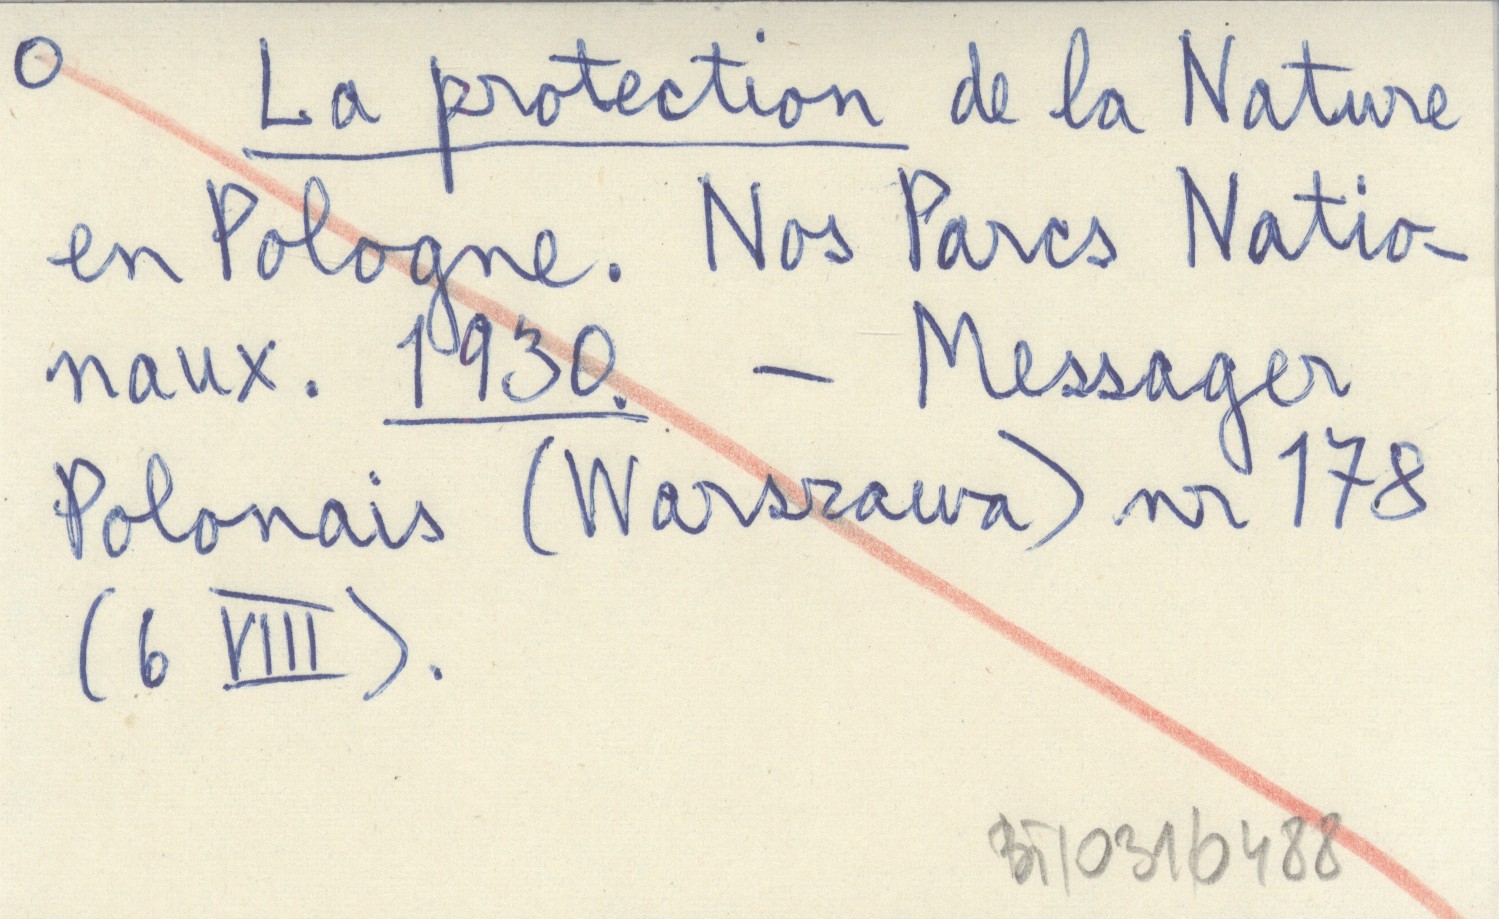 O La protection de la Nature
en Pologne. Nos Parcs Natio-
naux. 1930. – Messager
Polonais (Warszawa) nr 178
(6 VIII).
BT/031/0488